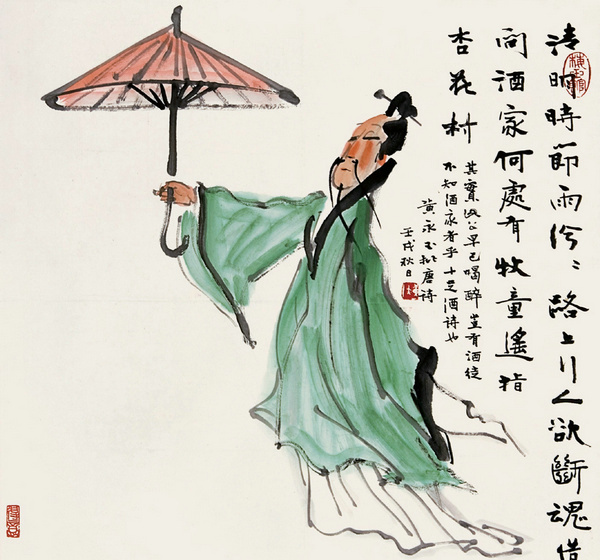 清明時節雨紛〻路上行人欲斷魂借
問酒家何處有牧童遙指
杏花村
其實此公早已喝醉豈有酒徒
不知酒家者乎十足酒話也
黄永玉批唐诗
壬戌秋日